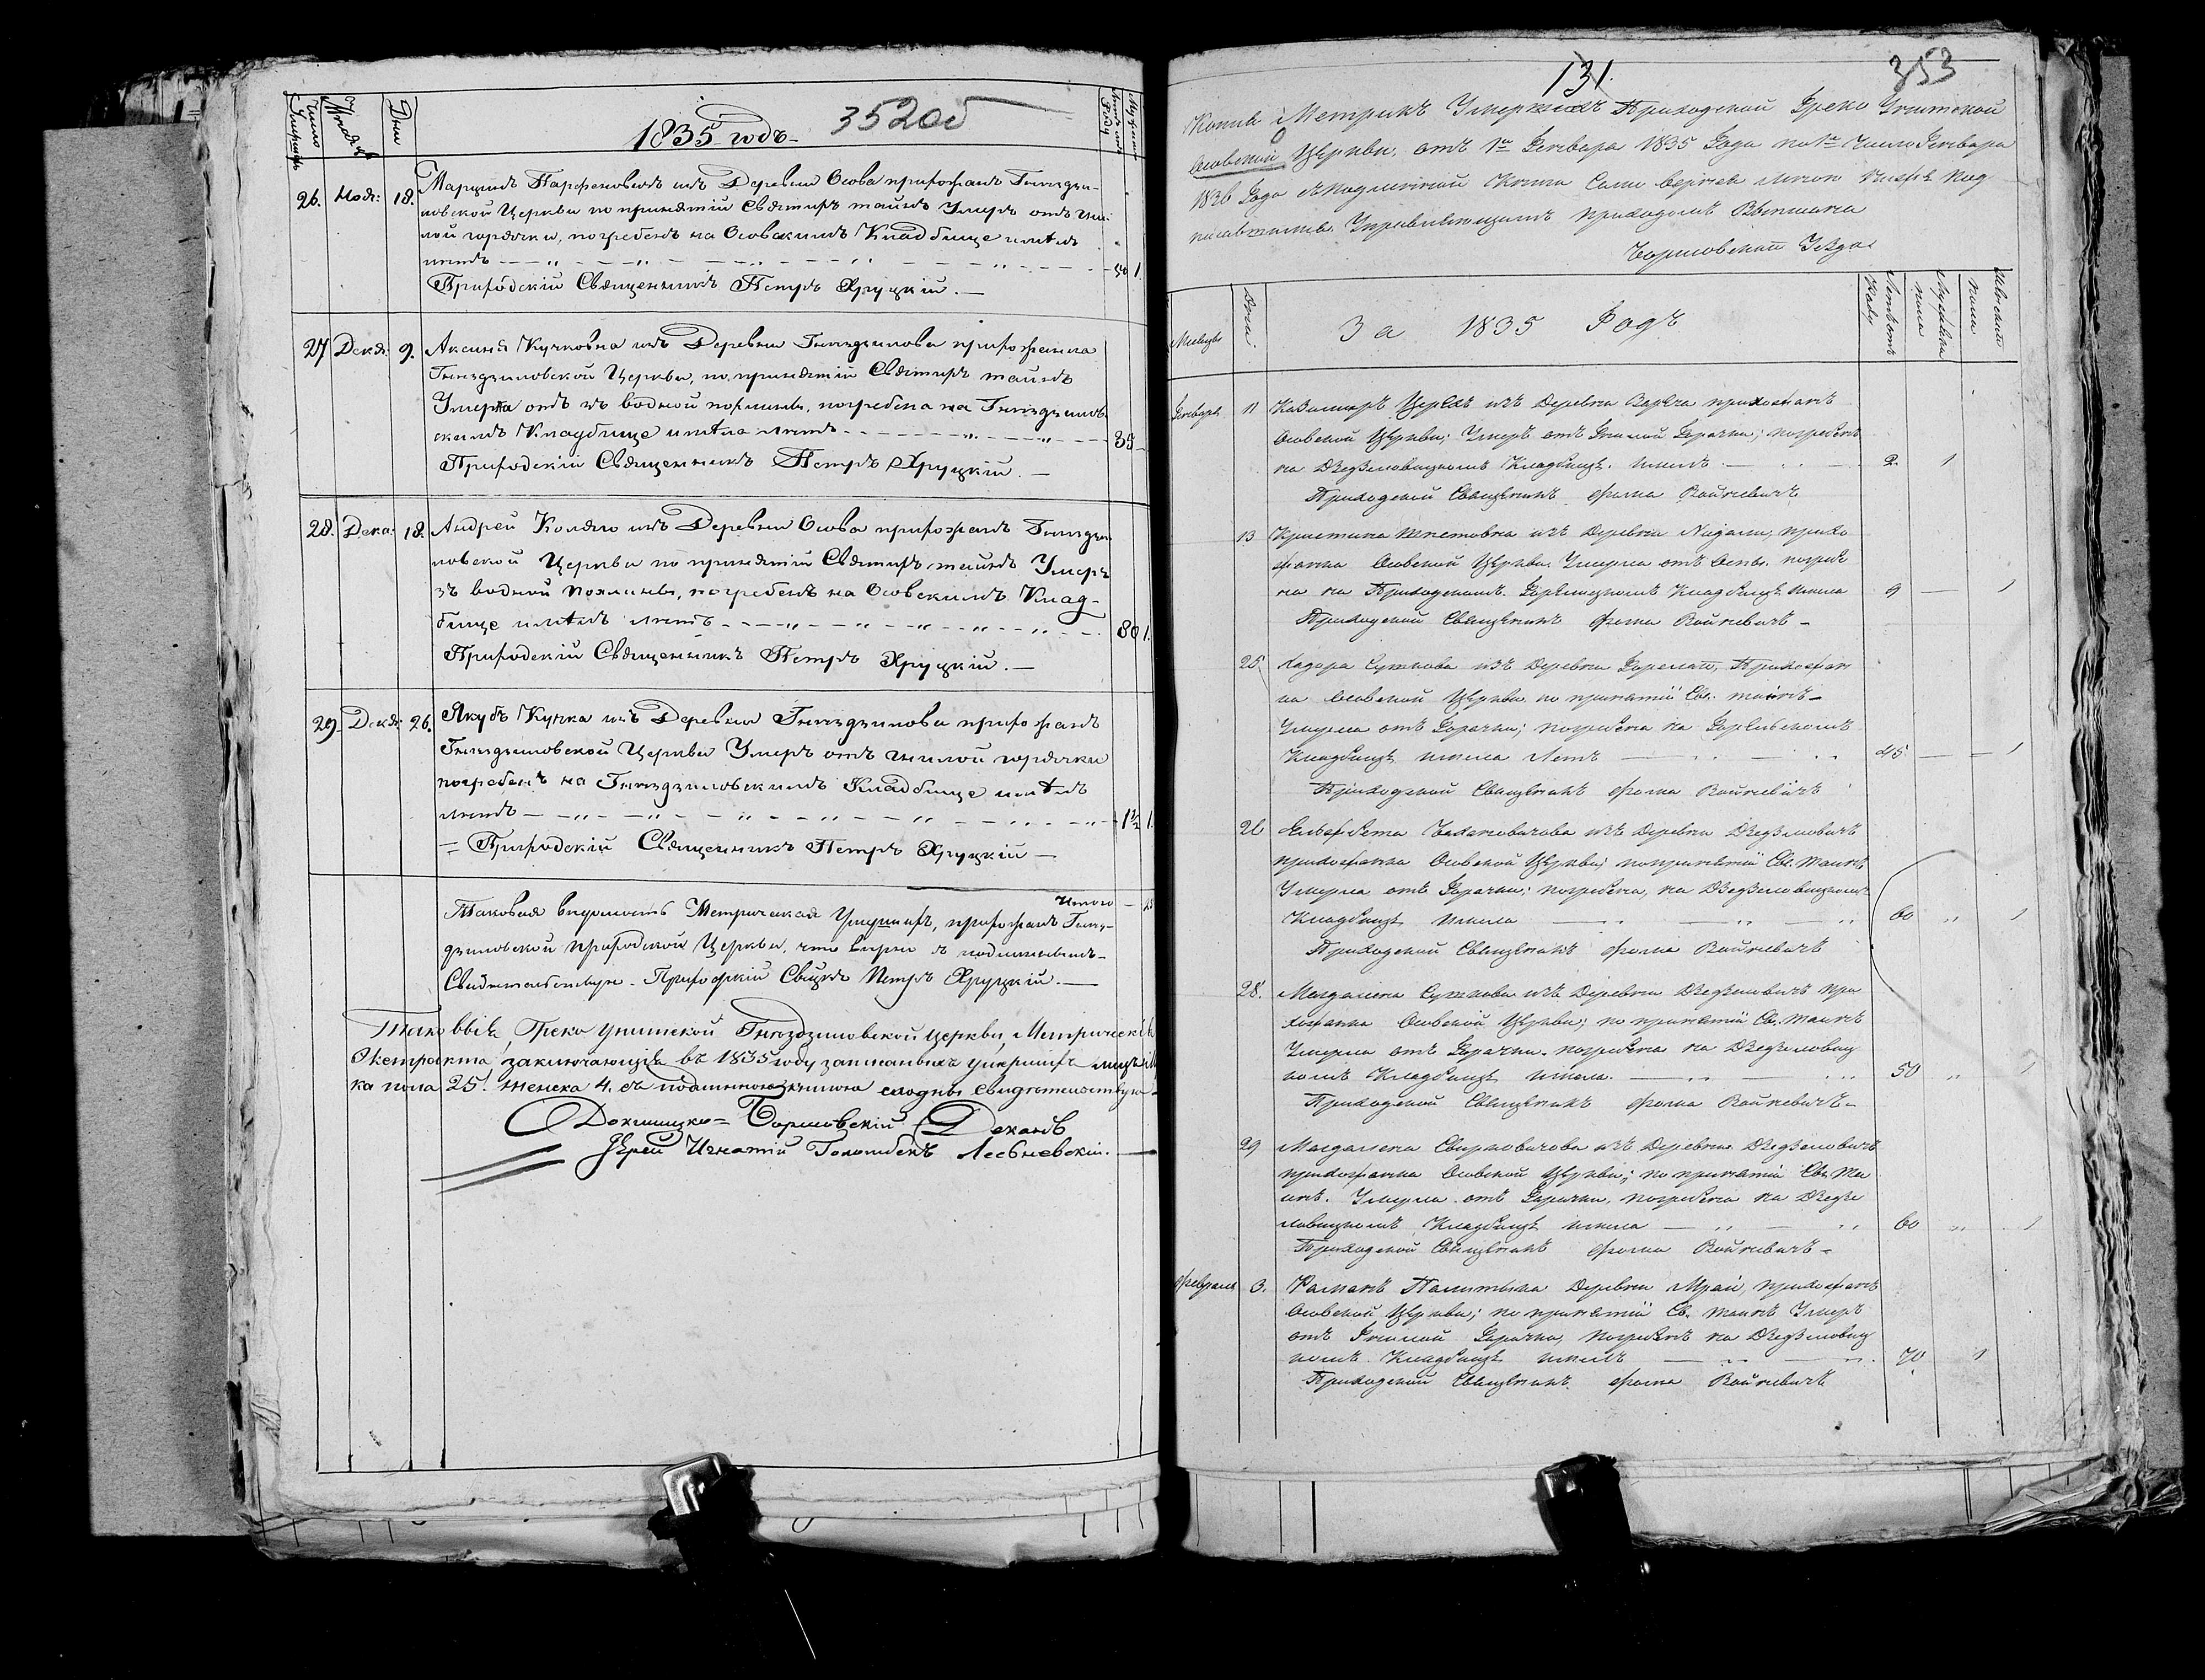 1835 годъ
352об
Число Умершихъ
Мѣсяцъ
Дни
26. Нояб: 18. Марцинъ Парфеновичъ изъ Деревни Осова прихожанъ Гнѣзди-
ловской Церкви по принятіи Святыхъ таинъ Умеръ отъ гни-
лой горячки, погребенъ на Осовскимъ Кладбище имѣлъ
лѣтъ 50 1.
Приходскій Священникъ Петръ Хруцкій.
27 Декаб: 9. Аксинія Кучковна изъ Деревни Гнѣздзилова прихожанка
Гнѣздзиловской Церкви, по принятіи Святыхъ таинъ
Умерла отъ зъ водной похлины, погребена на Гнѣздзилов-
скимъ Кладбище имѣла лѣтъ 85
Приходскій Священникъ Петръ Хруцкій.
28. Дека: 18. Андрей Коляго изъ Деревни Осова прихожанъ Гнѣздзи-
ловской Церкви по принятіи Святыхъ таинъ Умеръ
зъ водной похлины, погребенъ на Осовскимъ Клад-
бище имѣлъ лѣтъ 80 1.
Приходскій Священникъ Петръ Хруцкій.
29. Декаб: 26. Якубъ Кучка изъ Деревни Гнѣздзилова прихожанъ
Гнѣздзиловской Церкви Умеръ отъ гнилой горячки
погребенъ на Гнѣздзиловскимъ Кладбище имѣлъ
лѣтъ 1½ 1.
Приходскій Священникъ Петръ Хруцкій
Итого
Таковая видомость Метрическая Умершихъ, прихожанъ Гнѣз-
дзиловской приходской Церкви, что вѣрна съ подлиннымъ
Свидѣтельствую. Приходскій Свящнкъ Петръ Хруцкій.
Таковыя, Греко унитской Гнѣздзиловской церкви, Метрическія
Экстракта заключающія въ 1835 году записанныхъ умершихъ мужес-
ка пола 25. женска 4. съ подлинною книгою сходны свидѣтельствую
Докшицко-Борисовскій Деканъ
Іерей Игнатій Голомбекъ Лесьневскій.
131.
353
Копія Метрикъ Умершихъ Приходской Греко Унитской
Осовской Церкви, отъ 1го Генваря 1835 Года по 1е Число Генваря
1836 Года
Управляющимъ приходомъ
Борисовскаго Уѣзда
Мѣсяцъ
Дни
За 1835 Годъ
Генварь 11 Казимиръ изъ Деревни прихожанъ
Осовской Церкви; Умеръ отъ Гнилой Горячки; погребенъ
на Дзедзиловицкомъ Кладбищѣ. имѣлъ 2 1
Приходской Священникъ Фома Войневичъ
13 Кристина изъ Деревни прихо
жанка Осовской Церкви. Умерла отъ Оспы. погребе
на на Приходскомъ Кладбищѣ имела 9 1
Приходской Священникъ Фома Войневичъ
25 Сушкова изъ Деревни Прихожан
ка Осовской Церкви по принятіи Св. таинъ
Умерла отъ Горячки; погребена на
Кладбищѣ имела Летъ 45 1
Приходской Священникъ Фома Войневичъ
26 Елизабета изъ Деревни Дзедзиловичъ
прихожанка Осовской Церкви; по принятіи Св. Таинъ
Умерла отъ Горячки; погребена, на Дзедзиловицкомъ
Кладбищѣ имела 60 1
Приходской Священникъ Фома Войневичъ
28. Магдалена Сушкова изъ Деревни Дзедзиловичъ при
хожанка Осовской Церкви; по принятіи Св. Таинъ
Умерла отъ Горячки. погребена на Дзедзиловиц
комъ Кладбищѣ имела. 50 1
Приходской Священникъ Фома Войневичъ
29 Магдалена Свирковичова изъ Деревни Дзедзиловичъ
прихожанка Осовской Церкви; по принятіи Св. Та
инъ. Умерла отъ Горячки, погребена на Дзедзи
ловицкомъ Кладбищѣ имела 60 1
Приходской Священникъ Фома Войневичъ
Февраля 3. Романъ Деревни прихожанъ
Осовской Церкви; по принятіи Св. таинъ Умеръ
отъ Гнилой Горячки, погребенъ на Дзедзиловиц
комъ Кладбищѣ имелъ 70 1
Приходской Священникъ Фома Войневичъ